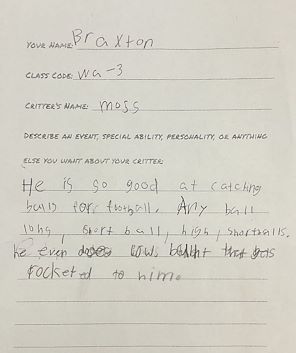 YOUR NAME: Braxton
CLASS CODE: wa-3
CRITTER'S NAME: moss
DESCRIBE AN EVENT, SPECIAL ABILITY, PERSONALITY, OR ANYTHING
ELSE YOU WANT ABOUT YOUR CRITTER:
He is so good at catching
balls for football. Any ball
long, short ball, high, shortballs.
he even does low that
rocketd to him.